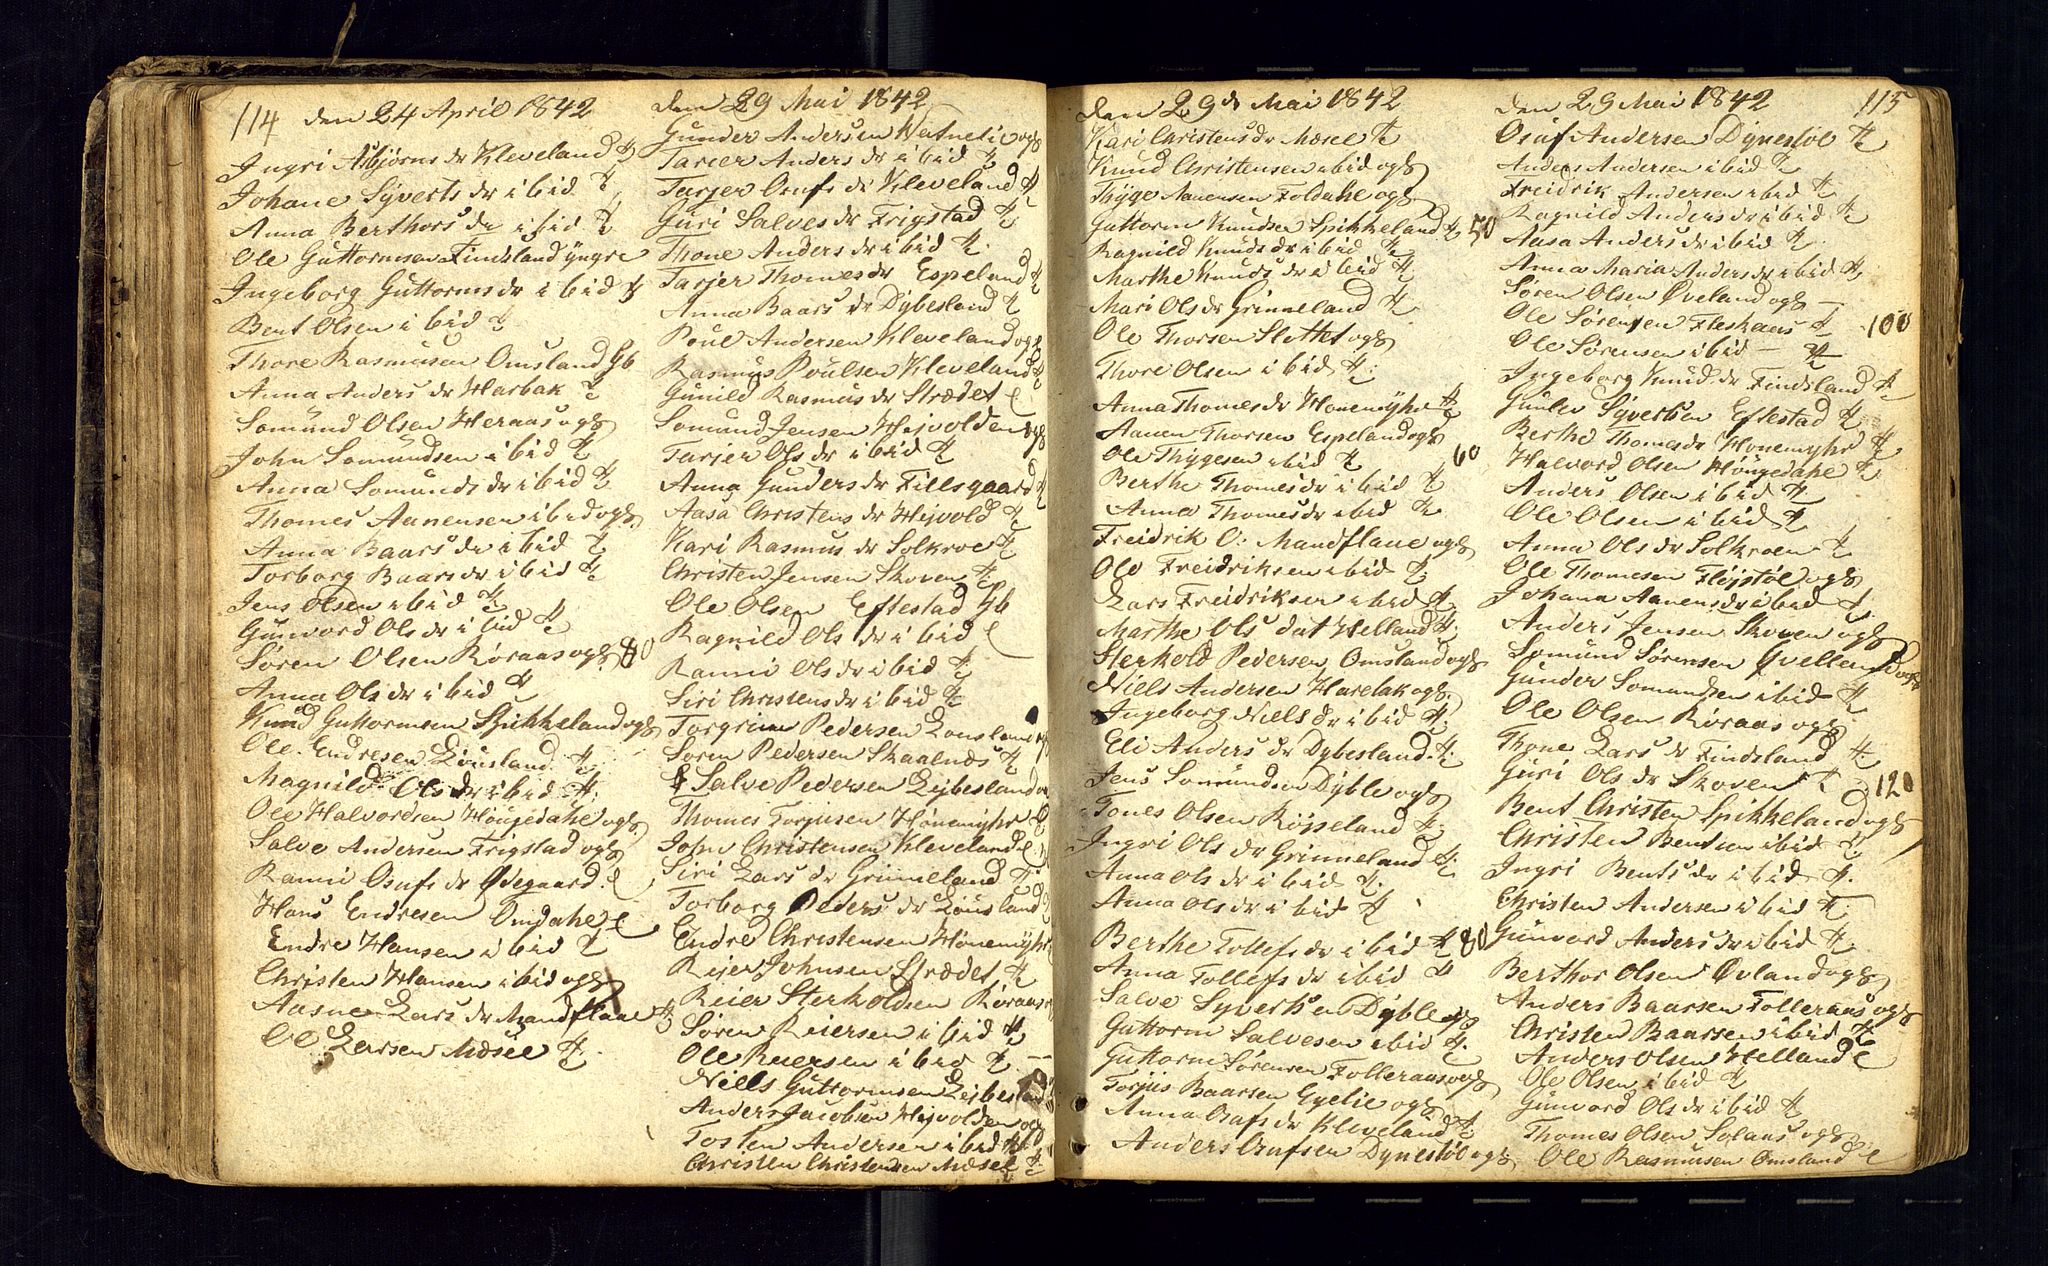 114 den 24 April 1842
Ingri Asbjörns dr Kleveland
Johane Syverts dr ibid
Anna Berthors dr ibid
Ole Guttormsen Findsland yngre
Ingeborg Guttorms dr ibid
Bent Olsen ibid
Thore Rasmusen Omsland Gb
Anna Anders dr Harbak
Somund Olsen Heraas og
John Somundsen ibid
Anna Somunds dr ibid
Thomes Aanensen ibid og
Anna Baars dr ibid
Torborg Baars dr ibid
Jens Olsen ibid
Gunvord Ols dr ibid
Søren Olsen Røraas og
Anna Ols dr ibid
Knud Guttormsen Spikkeland og
Ole Endresen Lousland
Magnild Ols dr ibid
Ole Halvordsen Høugedahl og
Salve Andersen Frigstad og
Rannii Osufs dr Ødegaard
Hans Endresen Omdahl
Endre Hansen ibid
Christen Hansen ibid og
Aasne Lars dr Mandflaae
Ol Larsen Mæsel
den 29 Mai 1842
Gunder Andersen Vatnelie og
Tarjer Anders dr ibid
Tarjer Osufs dr Kleveland
Guri Salves dr Frigstad
Thone Anders dr ibid
Tarjer Thomes dr Espeland
Anna Baars dr Dybesland
Poul Andersen Kleveland og
Rasmus Poulsen Kleveland
Gunild Rasmus dr Strædet
Somund Jensen Hejvolden og
Tarjer Ols dr ibid
Anna Gunders dr Fillsgaard
Aasa Christens dr Hejvold
Kari Rasmus dr Solkroe
Christen Jensen Skoven
Ole Olsen Eftestad Gb
Ragnild Ols dr ibid
Rannii Ols dr ibid
Siri Christens dr ibid
Torgrim Pedersen Lonsland
Søren Pedersen Skaalnæs
Salve Pedersen Lejbesland
Thomes Torjusen Hønemyhr
John Christensen Kleveland
Siri Lars dr Grimeland
Torborg Peders dr Lousland
Endre Christensen Hønemyhr
Rejer Johnsen Strædet
Reier Sterkoldsen Røraas
Søren Reiersen ibid
Ole Reiersen ibid
Niels Guttormsen Lejbesland
Anders Jacobsen Hejvolden og
Tosten Andersen ibid
Christen Christensen Mæsel
den 29 de Mai 1842
Kari Christens dr Mæsel
Knud Christensen ibid og
Thyge Aanensen Foldahl og
Guttorm Knudsen Spikkeland 50
Ragnild Knuds dr ibid
Marthe Knuds dr ibid
Mari Ols dr Grimeland
Ole Thorsen Slottet og
Thore Olsen ibid
Anna Thomes dr Hønemyhr
Aanen Thorsen Espeland og
Ole Thygesen ibid 60
Berthe Thomes dr ibid
Anna Thomes dr ibid
Freidrik O: Mandflaae og
Ole Freidriksen ibid
Lars Freidriksen ibid
Marthe Ols dat Helland
Sterkold Pedersen Omsland og
Niels Andersen Harebak og
Ingeborg Niels dr ibid
Eli Anders dr Dybesland
Jens Somundsen Dyble og
Tones Olsen Røjseland
Ingri Ols dr Grimeland
Anna Ols dr ibid
Anna Ols dr ibid
Berthe Tollefs dr ibid 80
Anna Tollefs dr ibid
Salve Syvertsen Dyble og
Guttorm Salvesen ibid
Guttorm Sørensen Tolleraas og
Torjus Baarsen Egelie og
Anna Osufs dr Kleveland
Anders Osufsen Dynestøl og
den 29 Mai 1842 115
Osuf Andersen Dynestøl
Anders Andersen ibid
Freidrik Andersen ibid
Ragnild Anders dr ibid
Aasa Anders dr ibid
Anna Maria Anders dr ibid
Søren Olsen Øveland og
Ole Sørensen Fleskaas 100
Ole Sørensen ibid
Ingeborg Knud dr Findsland
Gunlev Syvertsen Eftestad
Berthe Thomes dr Hønemyhr
Halvord Olsen Høugedahl
Anders Olsen ibid
Ole Olsen ibid
Anna Ols dr Solkroen
Ole Thomesen Fløjstøl og
Johana Aanens dr ibid
Anders Jensen Skoven og
Somund Sørensen Qvelland og
Gunder Somundsen ibid
Ole Olsen Røraas og
Thone Lars dr Findsland
Guri Ols dr Skoven 120
Bent Christen Spikkeland og
Christen Bentsen ibid
Ingri Bents dr ibid
Christen Andersen ibid
Gunvord Anders dr ibid
Berthor Olsen Øvland og
Anders Baarsen Tolleraas og
Christen Baarsen ibid
Anders Olsen Helland
Ole Olsen ibid
Gunvord Ols dr ibid
Thomes Olsen Solaas og
Ole Rasmusen Omsland